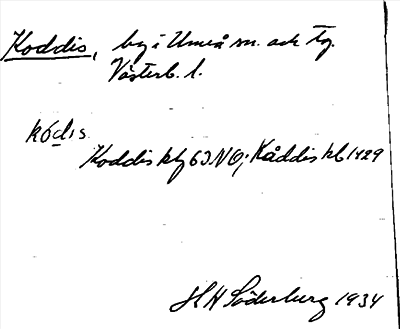 Koddis, by i Umeå sn. och tg.
Västerb. l.
kódis
Koddis kbg 63 NO; Kåddis kb 1429
H H Söderburg 1934